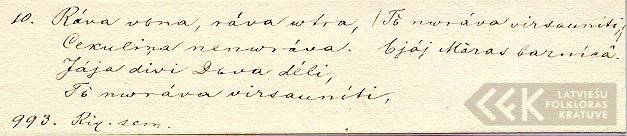 10. Ráva vbna, ráva wtra, / Tò nwráva virsauníti,
Cekuliņa nenwráva. Ejáj Màras baznícâ.
Jája divi Dava déli,
Tò nwráva virsauníti,
993. Rig. sem.
LATVIEŠU
FOLKLORAS
KRĀTUVE